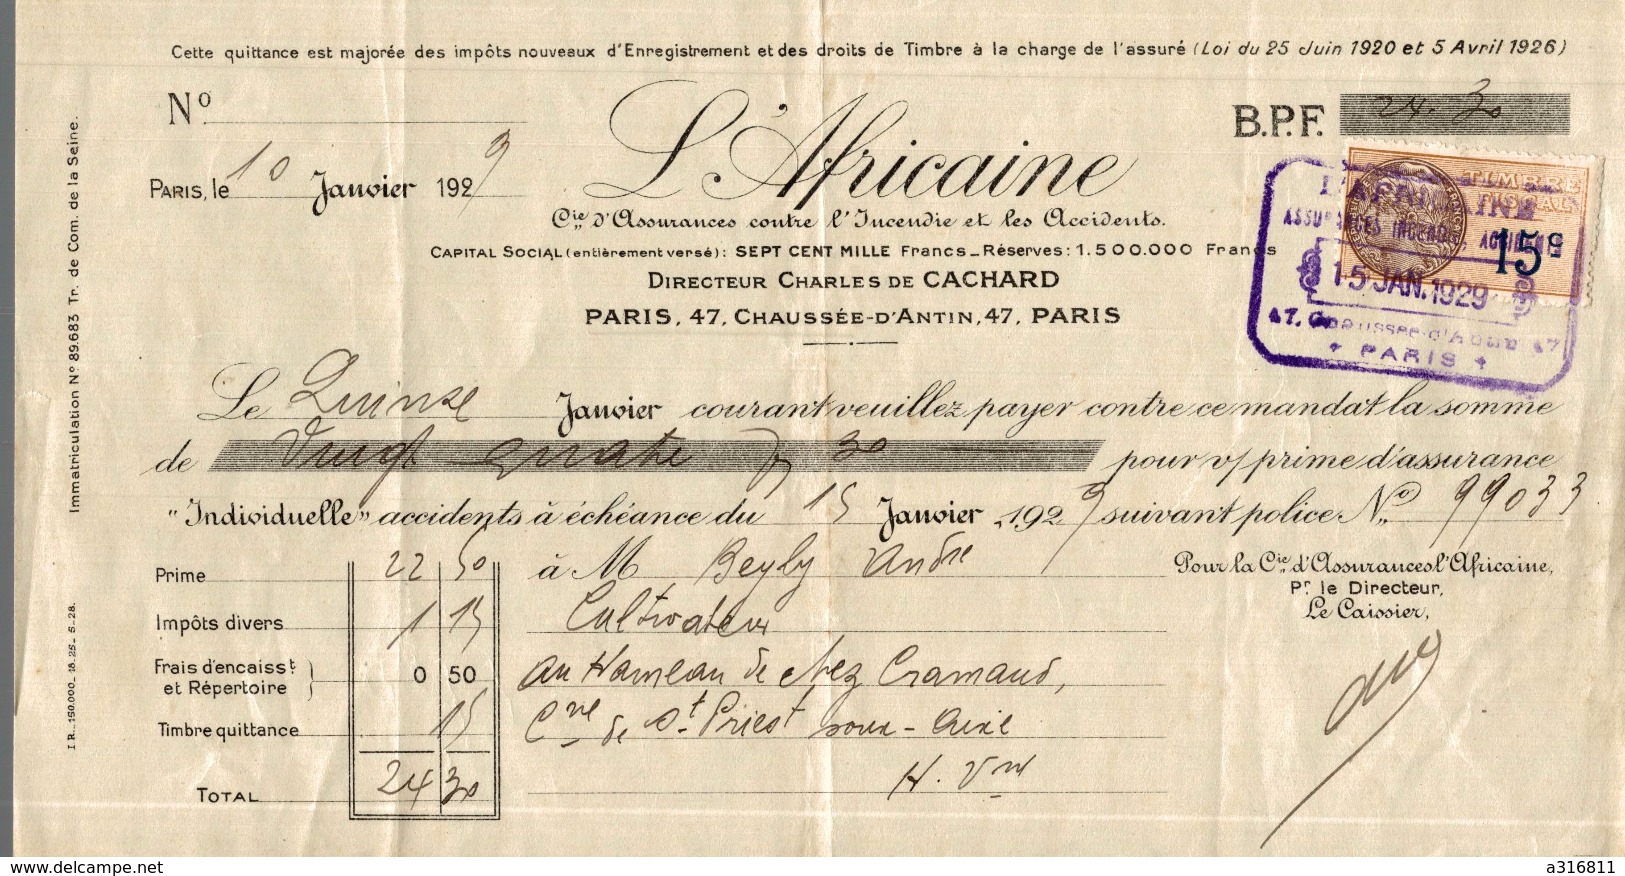 Cette quittance est majorée des impôts nouveaux d'Enregistrement et des droits de Timbre à la charge de l'assuré (Loi du 25 Juin 1920 et 5 Avril 1926)
Nº
B.P.F. 24.30
PARIS, le 10 Janvier 1929
L'Africaine
Cie d'Assurances contre l'Incendie et les Accidents.
CAPITAL SOCIAL (entièrement versé): SEPT CENT MILLE Francs_Réserves: 1.500.000 Francs
DIRECTEUR CHARLES DE CACHARD
PARIS, 47, CHAUSSÉE-D'ANTIN, 47, PARIS
TIMBRE
15c
L'AFRICAINE
ASSURANCES INCENDIE, ACCIDENTS
15 JAN. 1929
47, CHAUSSÉE-d'ANTIN 47
PARIS
Le Quinze Janvier courant veuillez payer contre ce mandat la somme
de Vingt quatre f 30 pour v/ prime d'assurance
"Individuelle" accidents à échéance du 15 Janvier 1929 suivant police Nº 99033
Prime 22 50
Impôts divers 1 15
Frais d'encaisst et Répertoire 0 50
Timbre quittance 15
TOTAL 24 30
à M Beyly André
Cultivateur
au Hameau de chez Cramaud,
Cne de St Priest sous-Aixe
H. Vne
Pour la Cie d'Assurances l'Africaine,
Pr le Directeur,
Le Caissier,
Immatriculation Nº 89.683 Tr. de Com. de la Seine.
I R._150.000_18.25_5-28.
www.delcampe.net
a316811